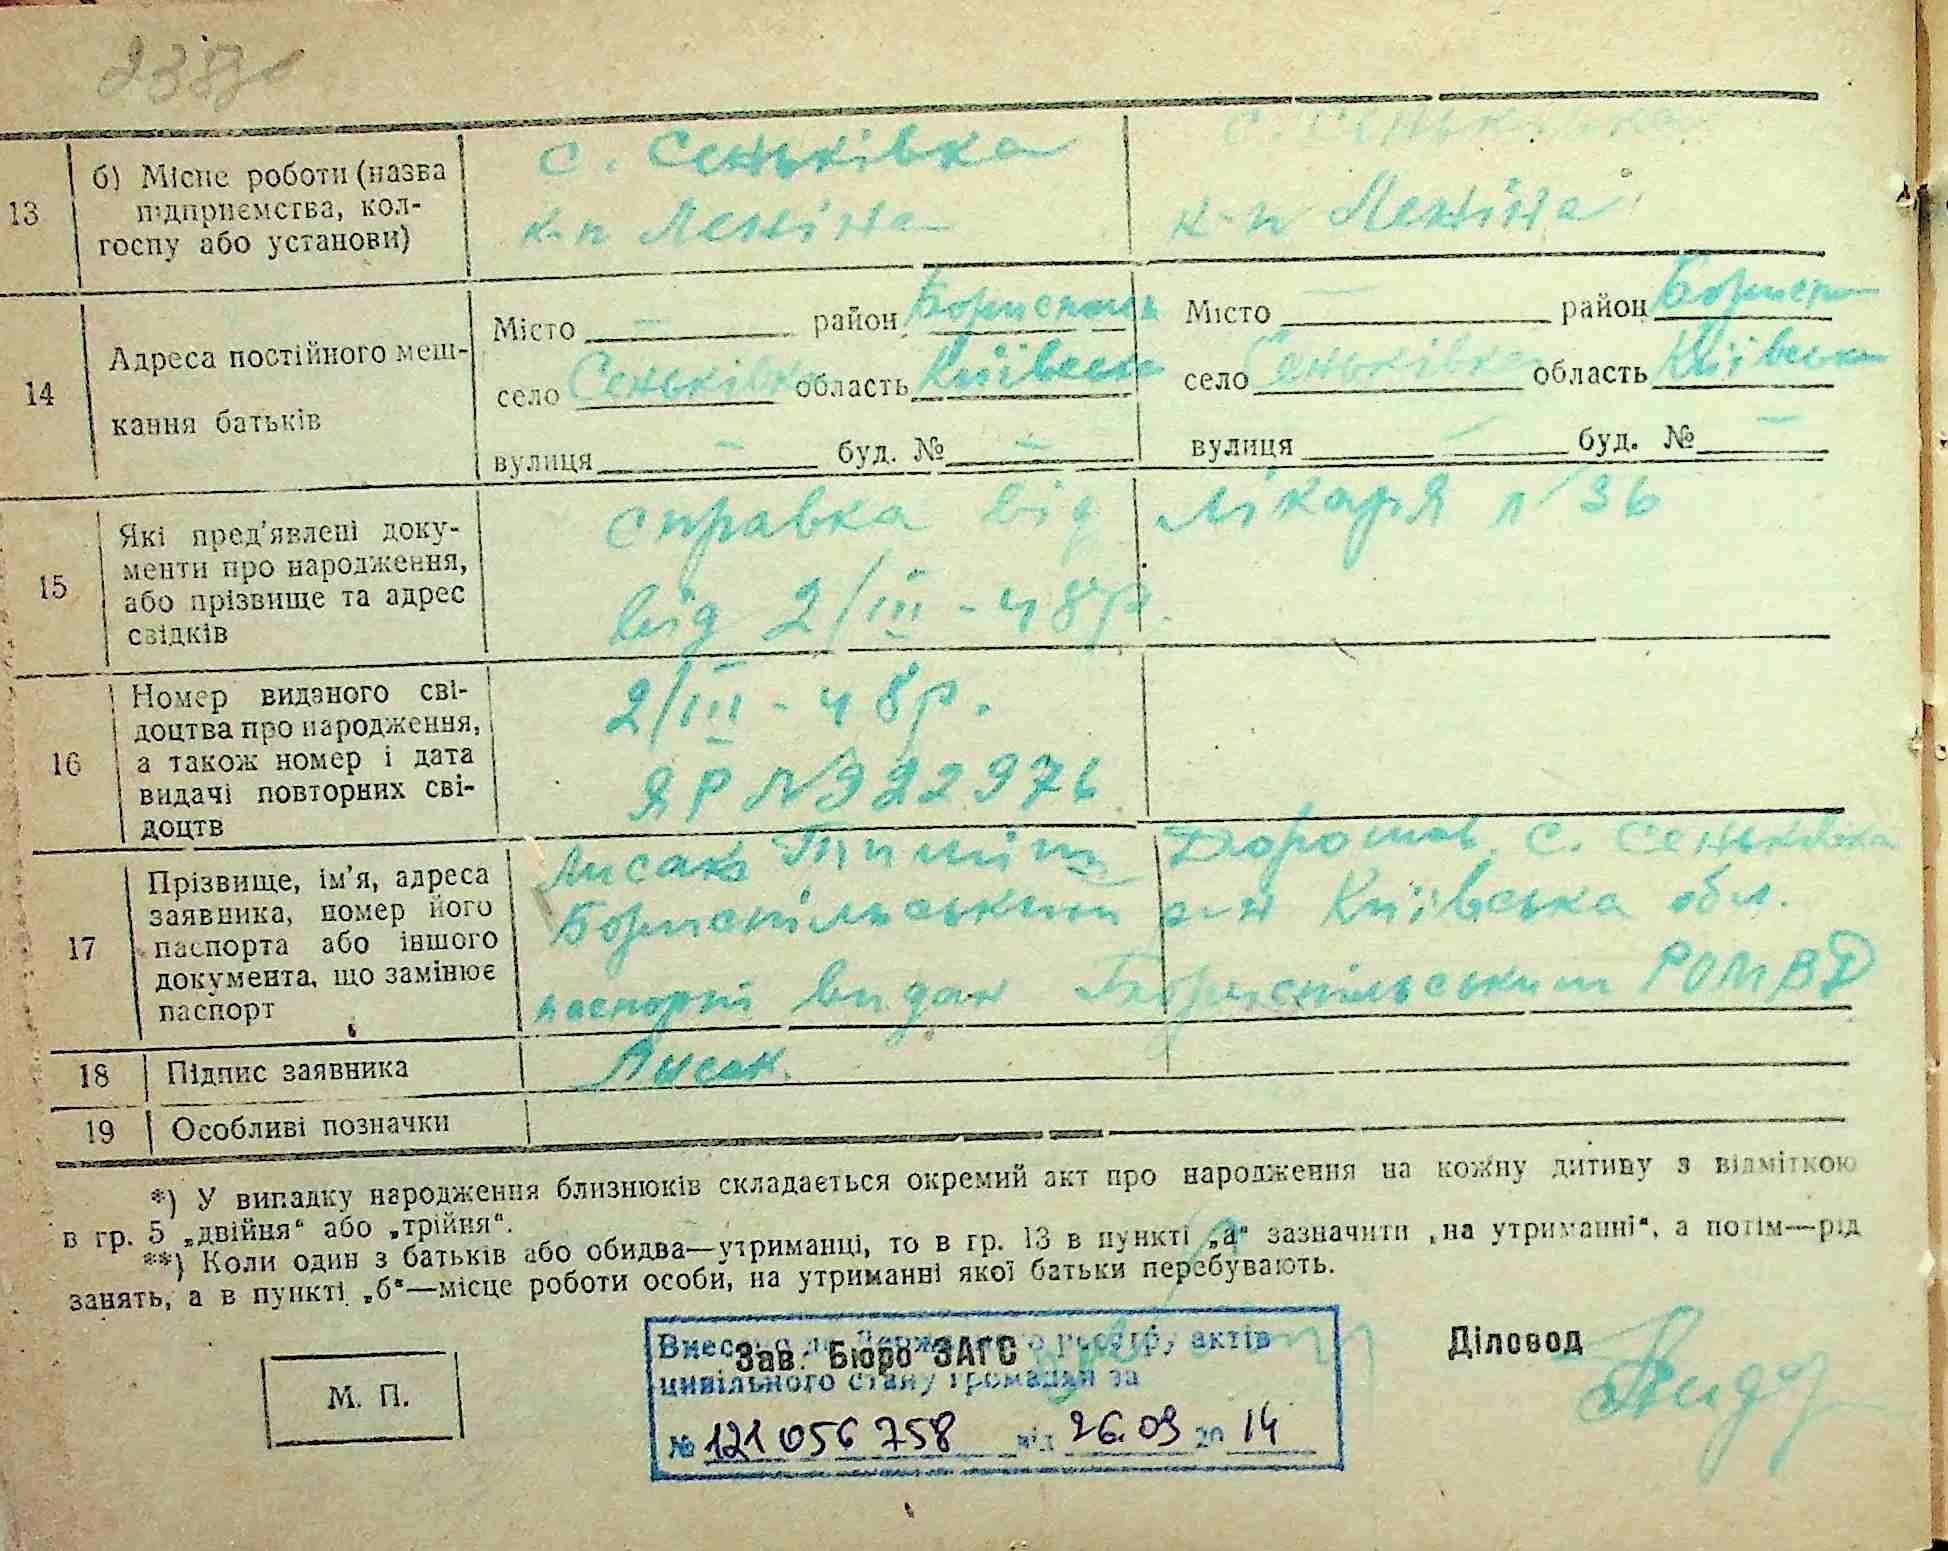 238
13
б) Місце роботи (назва
підприємства, кол-
госпу або установи)
с. Сеньківка
к-п Леніна
с. Сеньківка
к-п Леніна
14
Адреса постійного меш-
кання батьків
Місто — район Бориспільськ
село Сеньківка область Київська
вулиця — буд. № —
Місто — район Борисп—
село Сеньківка область Київська
вулиця — буд. № —
15
Які пред'явлені доку-
менти про народження,
або прізвище та адрес
свідків
справка від лікаря № 36
від 2/III - 48 р.
16
Номер виданого сві-
доцтва про народження,
а також номер і дата
видачі повторних сві-
доцтв
2/III - 48 р.
ЯР № 922976
17
Прізвище, ім'я, адреса
заявника, номер його
паспорта або іншого
документа, що замінює
паспорт
Лисак Тиміш с. Сеньківка
Бориспільський р-н Київська обл.
паспорт видан Бориспільським РОМВД
18
Підпис заявника
Лисак.
19
Особливі позначки
*) У випадку народження близнюків складається окремий акт про народження на кожну дитину з відміткою
в гр. 5 „двійня“ або „трійня“.
**) Коли один з батьків або обидва—утриманці, то в гр. 13 в пункті „а“ зазначити „на утриманні“, а потім—рід
занять, а в пункті „б“—місце роботи особи, на утриманні якої батьки перебувають.
М. П.
Зав. Бюро ЗАГС
Діловод
Внесено до Державного реєстру актів
цивільного стану громадян за
№ 121056758 від 26.09 2014